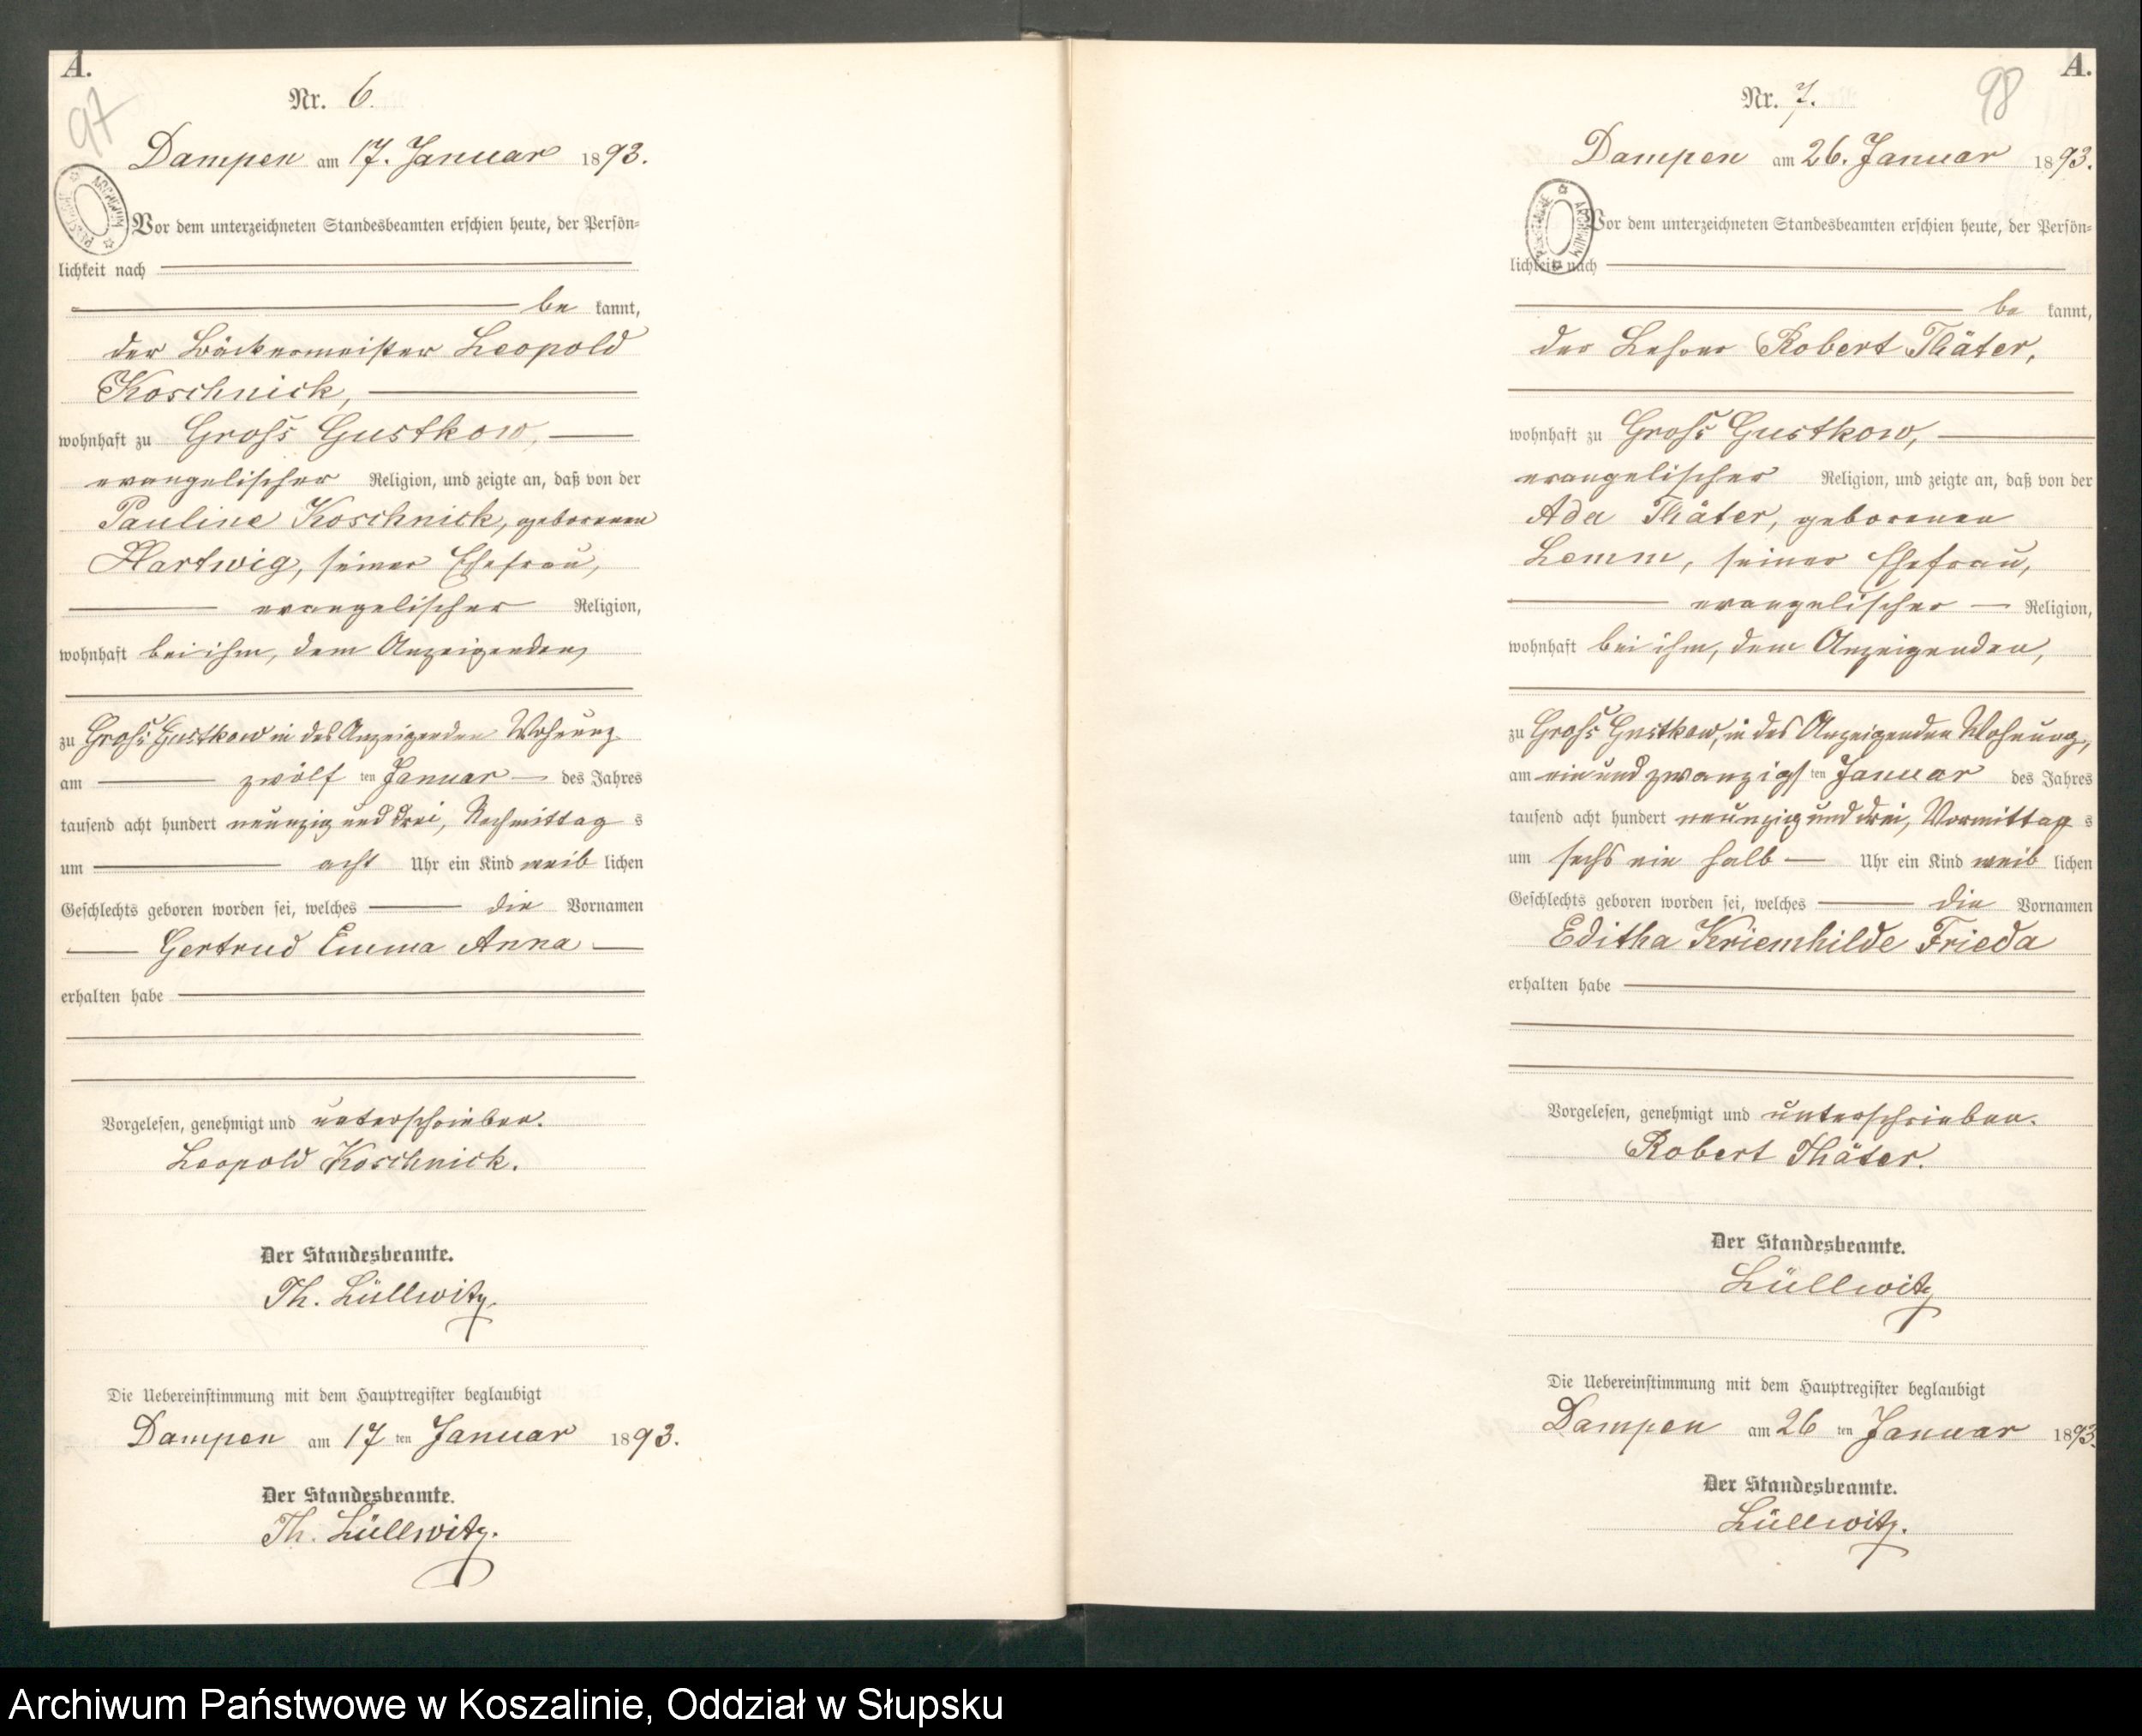 A.
97
Nr. 6.
Dampen am 17. Januar 1893.
ARCHIWUM PAŃSTWOWE
Vor dem unterzeichneten Standesbeamten erschien heute, der Persön-
lichkeit nach
be kannt,
der Bäckermeister Leopold
Koschnick,
wohnhaft zu Groß Gustkow,
evangelischer Religion, und zeigte an, daß von der
Pauline Koschnick, geborenen
Hartwig, seiner Ehefrau,
evangelischer Religion,
wohnhaft bei ihm, dem Anzeigenden,
zu Groß Gustkow in des Anzeigenden Wohnung
am zwölf ten Januar des Jahres
tausend acht hundert neunzig und drei, Nachmittag s
um acht Uhr ein Kind weib lichen
Geschlechts geboren worden sei, welches die Vornamen
Gertrud Emma Anna
erhalten habe
Vorgelesen, genehmigt und unterschrieben.
Leopold Koschnick.
Der Standesbeamte.
Th. Lüllwitz.
Die Uebereinstimmung mit dem Hauptregister beglaubigt
Dampen am 17 ten Januar 1893.
Der Standesbeamte.
Th. Lüllwitz.
A.
98
Nr. 7.
Dampen am 26. Januar 1893.
ARCHIWUM PAŃSTWOWE
Vor dem unterzeichneten Standesbeamten erschien heute, der Persön-
lichkeit nach
be kannt,
der Lehrer Robert Thäter,
wohnhaft zu Groß Gustkow,
evangelischer Religion, und zeigte an, daß von der
Ada Thäter, geborenen
Lemm, seiner Ehefrau,
evangelischer Religion,
wohnhaft bei ihm, dem Anzeigenden,
zu Groß Gustkow, in des Anzeigenden Wohnung,
am ein und zwanzigs ten Januar des Jahres
tausend acht hundert neunzig und drei, Vormittag s
um sechs ein halb Uhr ein Kind weib lichen
Geschlechts geboren worden sei, welches die Vornamen
Editha Kriemhilde Frieda
erhalten habe
Vorgelesen, genehmigt und unterschrieben.
Robert Thäter.
Der Standesbeamte.
Lüllwitz
Die Uebereinstimmung mit dem Hauptregister beglaubigt
Dampen am 26 ten Januar 1893.
Der Standesbeamte.
Lüllwitz.
Archiwum Państwowe w Koszalinie, Oddział w Słupsku